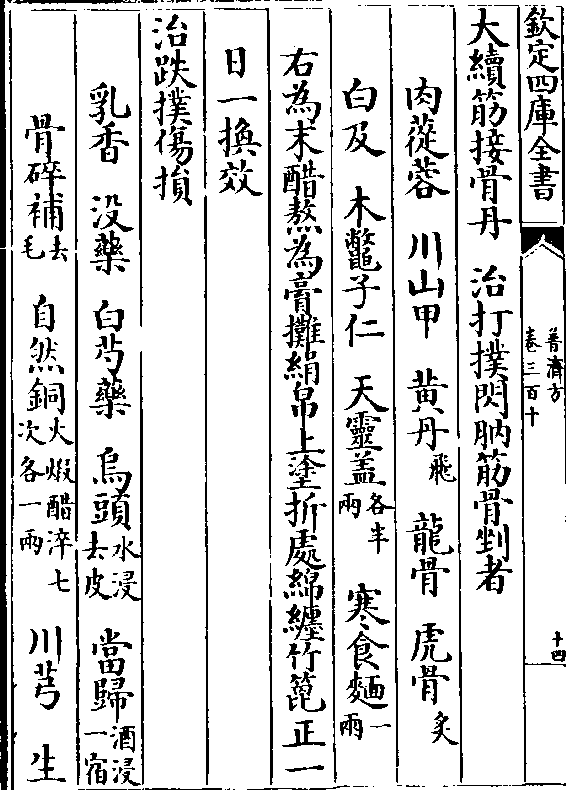 欽定四庫全書
普濟方
卷三百十
十四
大續筋接骨丹 治打撲閃肭筋骨剉者
肉蓯蓉 川山甲 黄丹飛 龍骨 虎骨炙
白及 木鼈子仁 天靈盖各半兩 寒食麵一兩
右為末醋熬為膏攤絹帛上塗折處綿纏竹篦正一
日一換效
治跌撲傷損
乳香 没藥 白芍藥 烏頭水浸去皮 當歸酒浸一宿
骨碎補去毛 自然銅火煅醋淬七次各一兩 川芎 生